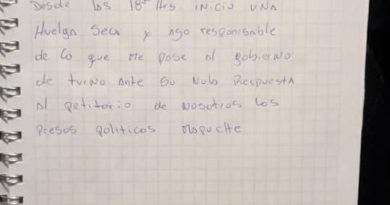 Desde las 18:00 Hrs INICIO UNA
Huelga Seca y ago responsable
de lo que me pase al gobierno
de turno ante su nula respuesta
al petitorio de nosotros los
presos politicos mapuche